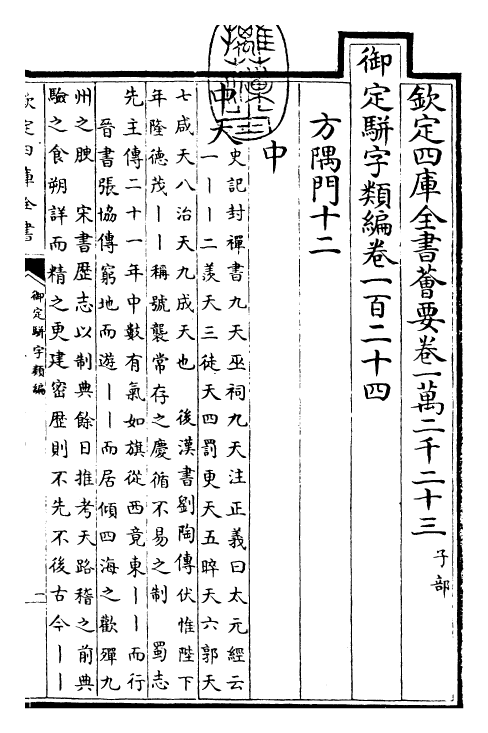 欽定四庫全書薈要卷一萬二千二十三 子部
御定駢字類編卷一百二十四
方隅門十二
中
中天
史記封禪書九天巫祠九天注正義曰太元經云
一丨丨二羨天三徒天四罰更天五晬天六郭天
七咸天八治天九成天也 後漢書劉陶傳伏惟陛下
年隆德茂丨丨稱號襲常存之慶循不易之制 蜀志
先主傳二十一年中數有氣如旗從西竟東丨丨而行
晉書張協傳窮地而遊丨丨而居傾四海之歡殫九
州之腴 宋書歷志以制典餘日推考天路稽之前典
驗之食朔詳而精之更建密歷則不先不後古今丨丨
欽定四庫全書
御定駢字類編